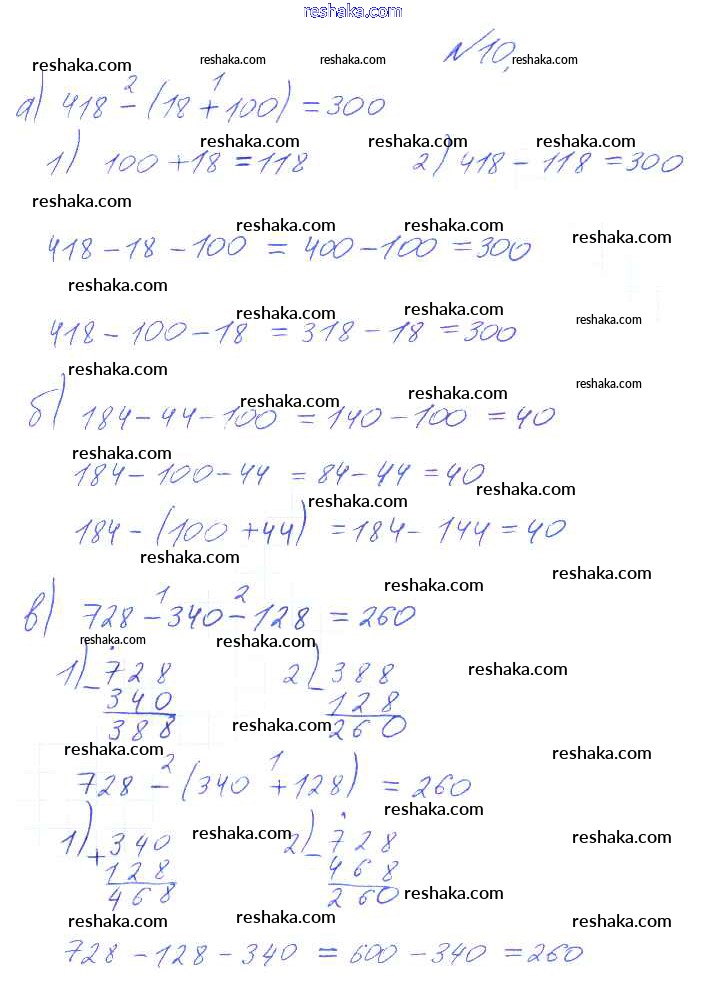 reshaka.com
№10.
reshaka.com reshaka.com reshaka.com reshaka.com
а) 418 - (18 + 100) = 300
2 1
reshaka.com reshaka.com reshaka.com
1) 100 + 18 = 118 2) 418 - 118 = 300
reshaka.com
reshaka.com reshaka.com reshaka.com
418 - 18 - 100 = 400 - 100 = 300
reshaka.com
reshaka.com reshaka.com reshaka.com
418 - 100 - 18 = 318 - 18 = 300
reshaka.com reshaka.com
reshaka.com reshaka.com
б) 184 - 44 - 100 = 140 - 100 = 40
reshaka.com
184 - 100 - 44 = 84 - 44 = 40
reshaka.com reshaka.com
184 - (100 + 44) = 184 - 144 = 40
reshaka.com reshaka.com reshaka.com
1 2
в) 728 - 340 - 128 = 260
reshaka.com reshaka.com reshaka.com
1) - 728 2) - 388
340 128
388 260
reshaka.com reshaka.com reshaka.com
2 1
728 - (340 + 128) = 260
reshaka.com
reshaka.com reshaka.com
1) + 340 2) - 728
128 468
468 260
reshaka.com
reshaka.com reshaka.com reshaka.com
728 - 128 - 340 = 600 - 340 = 260